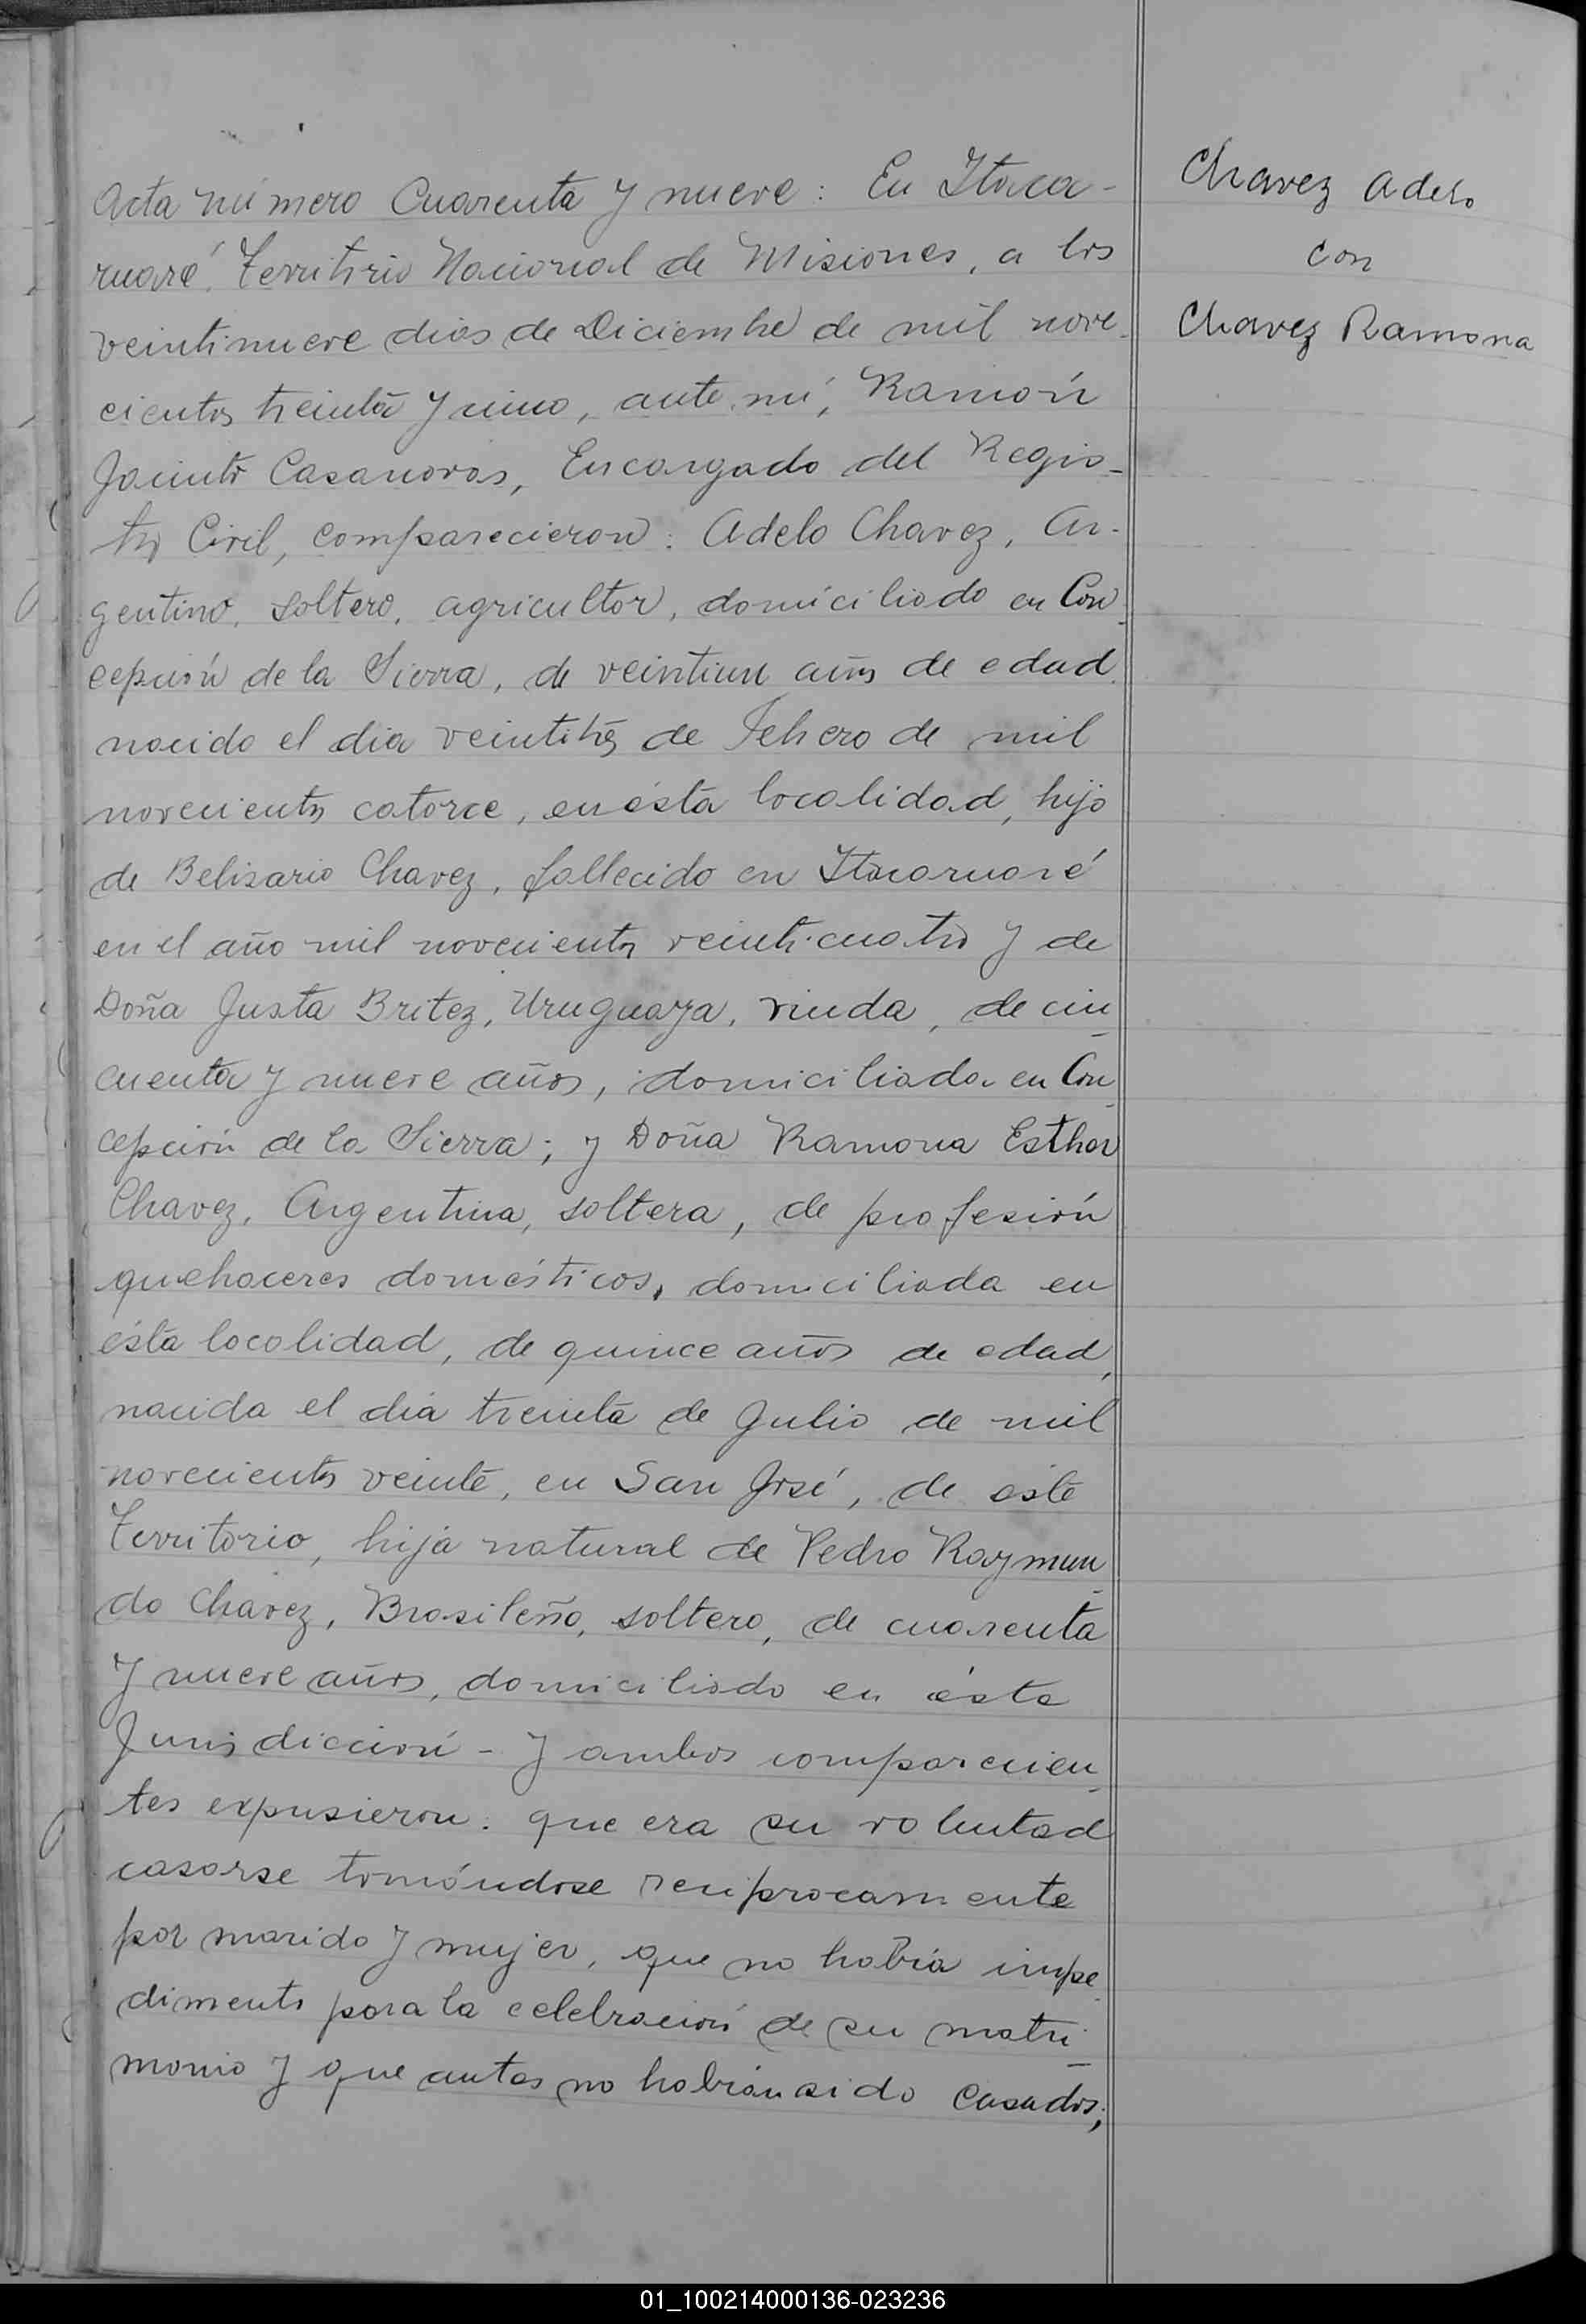 Acta número Cuarenta y nueve: En Itaca-
ruaré, Territorio Nacional de Misiones, a los
veintinueve dias de Diciembre de mil nove-
cientos treinta y cinco, ante mí, Ramón
Jacinto Casanovas, Encargado del Regis-
tro Civil, comparecieron: Adelo Chavez, Ar-
gentino, soltero, agricultor, domiciliado en Con-
cepción de la Sierra, de veintiun años de edad,
nacido el dia veintitrés de Febrero de mil
novecientos catorce, en ésta localidad, hijo
de Belisario Chavez, fallecido en Itacaruaré
en el año mil novecientos veinticuatro y de
Doña Justa Britez, Uruguaya, viuda, de cin-
cuenta y nueve años, domiciliada en Con-
cepción de la Sierra; y Doña Ramona Esther
Chavez, Argentina, soltera, de profesión
quehaceres domésticos, domiciliada en
ésta localidad, de quince años de edad,
nacida el dia treinta de Julio de mil
novecientos veinte, en San José, de éste
Territorio, hija natural de Pedro Raymun-
do Chavez, Brasileño, soltero, de cuarenta
y nueve años, domiciliado en ésta
Jurisdicción - Y ambos comparecien-
tes expusieron: que era su voluntad
casarse tomándose reciprocamente
por marido y mujer, que no había impe-
dimento para la celebración de su matri-
monio y que antes no habían sido casados;
Chavez Adelo
con
Chavez Ramona
01_100214000136-023236